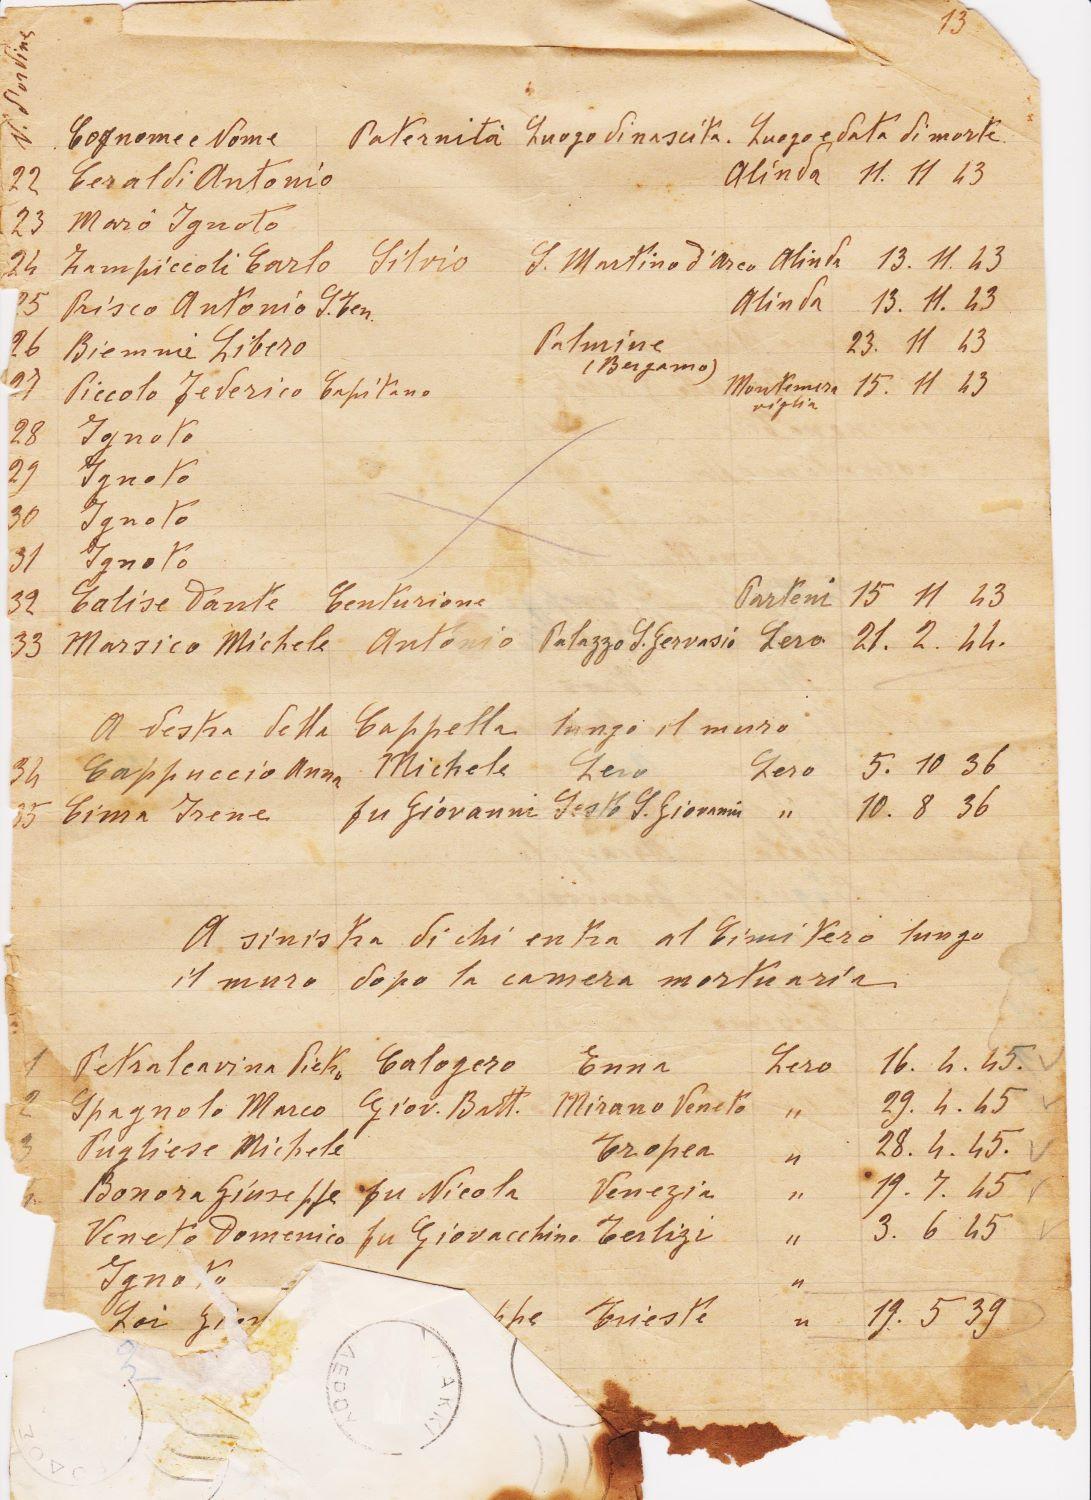 13
N. d'ordine Cognome e Nome Paternità Luogo di nascita. Luogo e data di morte
22 Ceraldi Antonio Alinda 11. 11 43
23 Marò Ignoto
24 Zampiccoli Carlo Silvio S. Martino d'Arco Alinda 13. 11. 43
25 Prisco Antonio S.Ten. Alinda 13. 11. 43
26 Biemmi Libero Palurine (Bergamo) 23. 11 43
27 Piccolo Federico Capitano Montemeraviglia 15. 11 43
28 Ignoto
29 Ignoto
30 Ignoto
31 Ignoto
32 Calise Dante Centurione Parteni 15 11 43
33 Marsico Michele Antonio Palazzo S. Gervasio Lero 21. 2. 44.
A destra della Cappella lungo il muro
34 Cappuccio Anna Michele Lero Lero 5. 10 36
35 Cima Irene fu Giovanni Sesto S. Giovanni " 10. 8 36
A sinistra di chi entra al Cimitero lungo
il muro dopo la camera mortuaria
1 Petraleavina Pietro Calogero Enna Lero 16. 4. 45.
2 Spagnolo Marco Giov. Batt. Mirano Veneto " 29. 4. 45
3 Pugliese Michele Tropea " 28. 4. 45.
Bonora Giuseppe fu Nicola Venezia " 19. 7. 45
Veneto Domenico fu Giovacchino Terlizi " 3. 6 45
Ignoto "
Loi Giov ppe Trieste " 19. 5 39